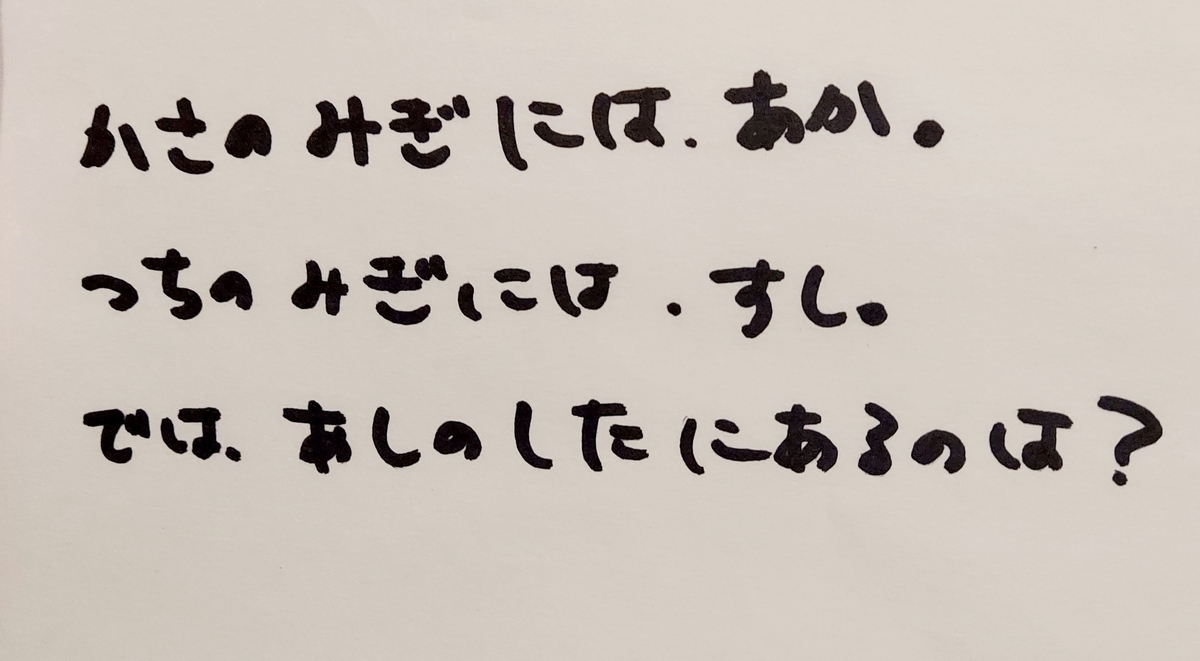 かさのみぎには、あか。
つちのみぎには、すし。
では、あしのしたにあるのは?